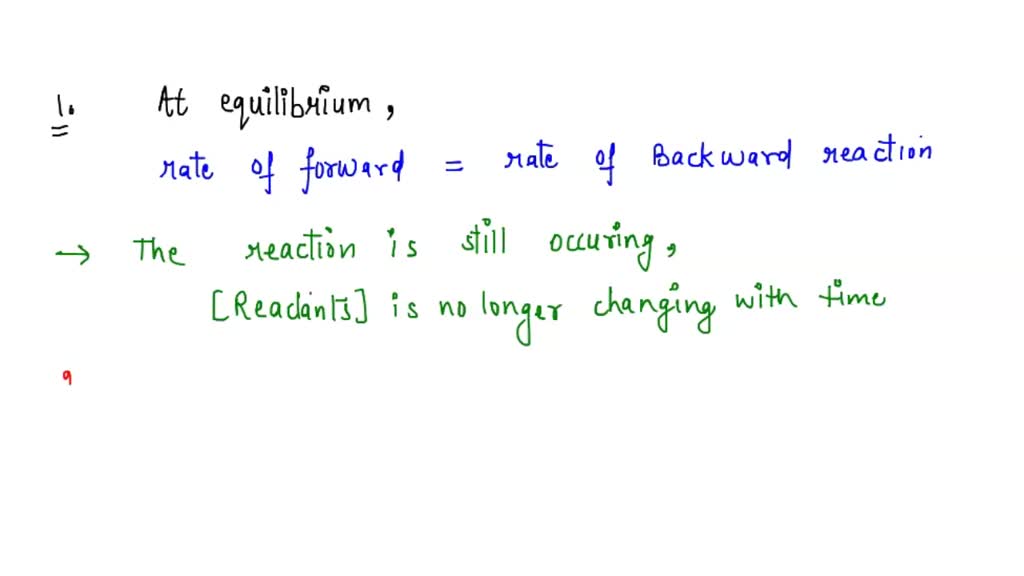 1. At equilibrium,
rate of forward = rate of Backward reaction
→ The reaction is still occuring,
[Reactants] is no longer changing with time